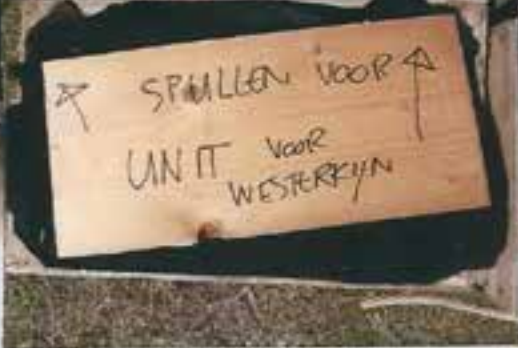 SPULLEN VOOR
UNIT VOOR
WESTERKYN